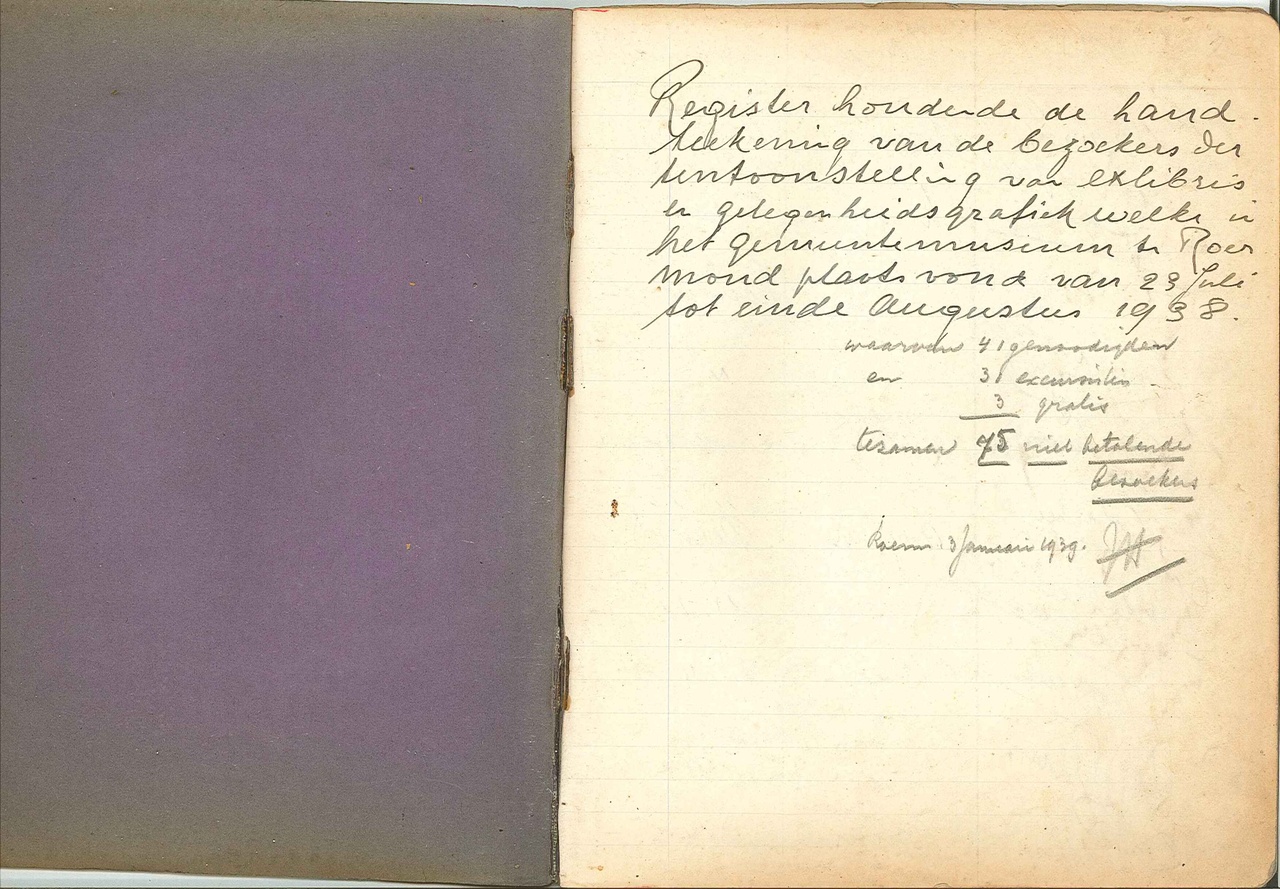 Register houdende de hand-
teekening van de bezoekers der
tentoonstelling van exlibris
en gelegenheidsgrafiek welke in
het gemeentemuseum te Roer
mond plaats vond van 23 Juli
tot einde Augustus 1938.
waarvan 41 genoodigden
en 31 excursies
3 gratis
tezamen 75 niet betalende
bezoekers
Roerm 3 Januari 1939.